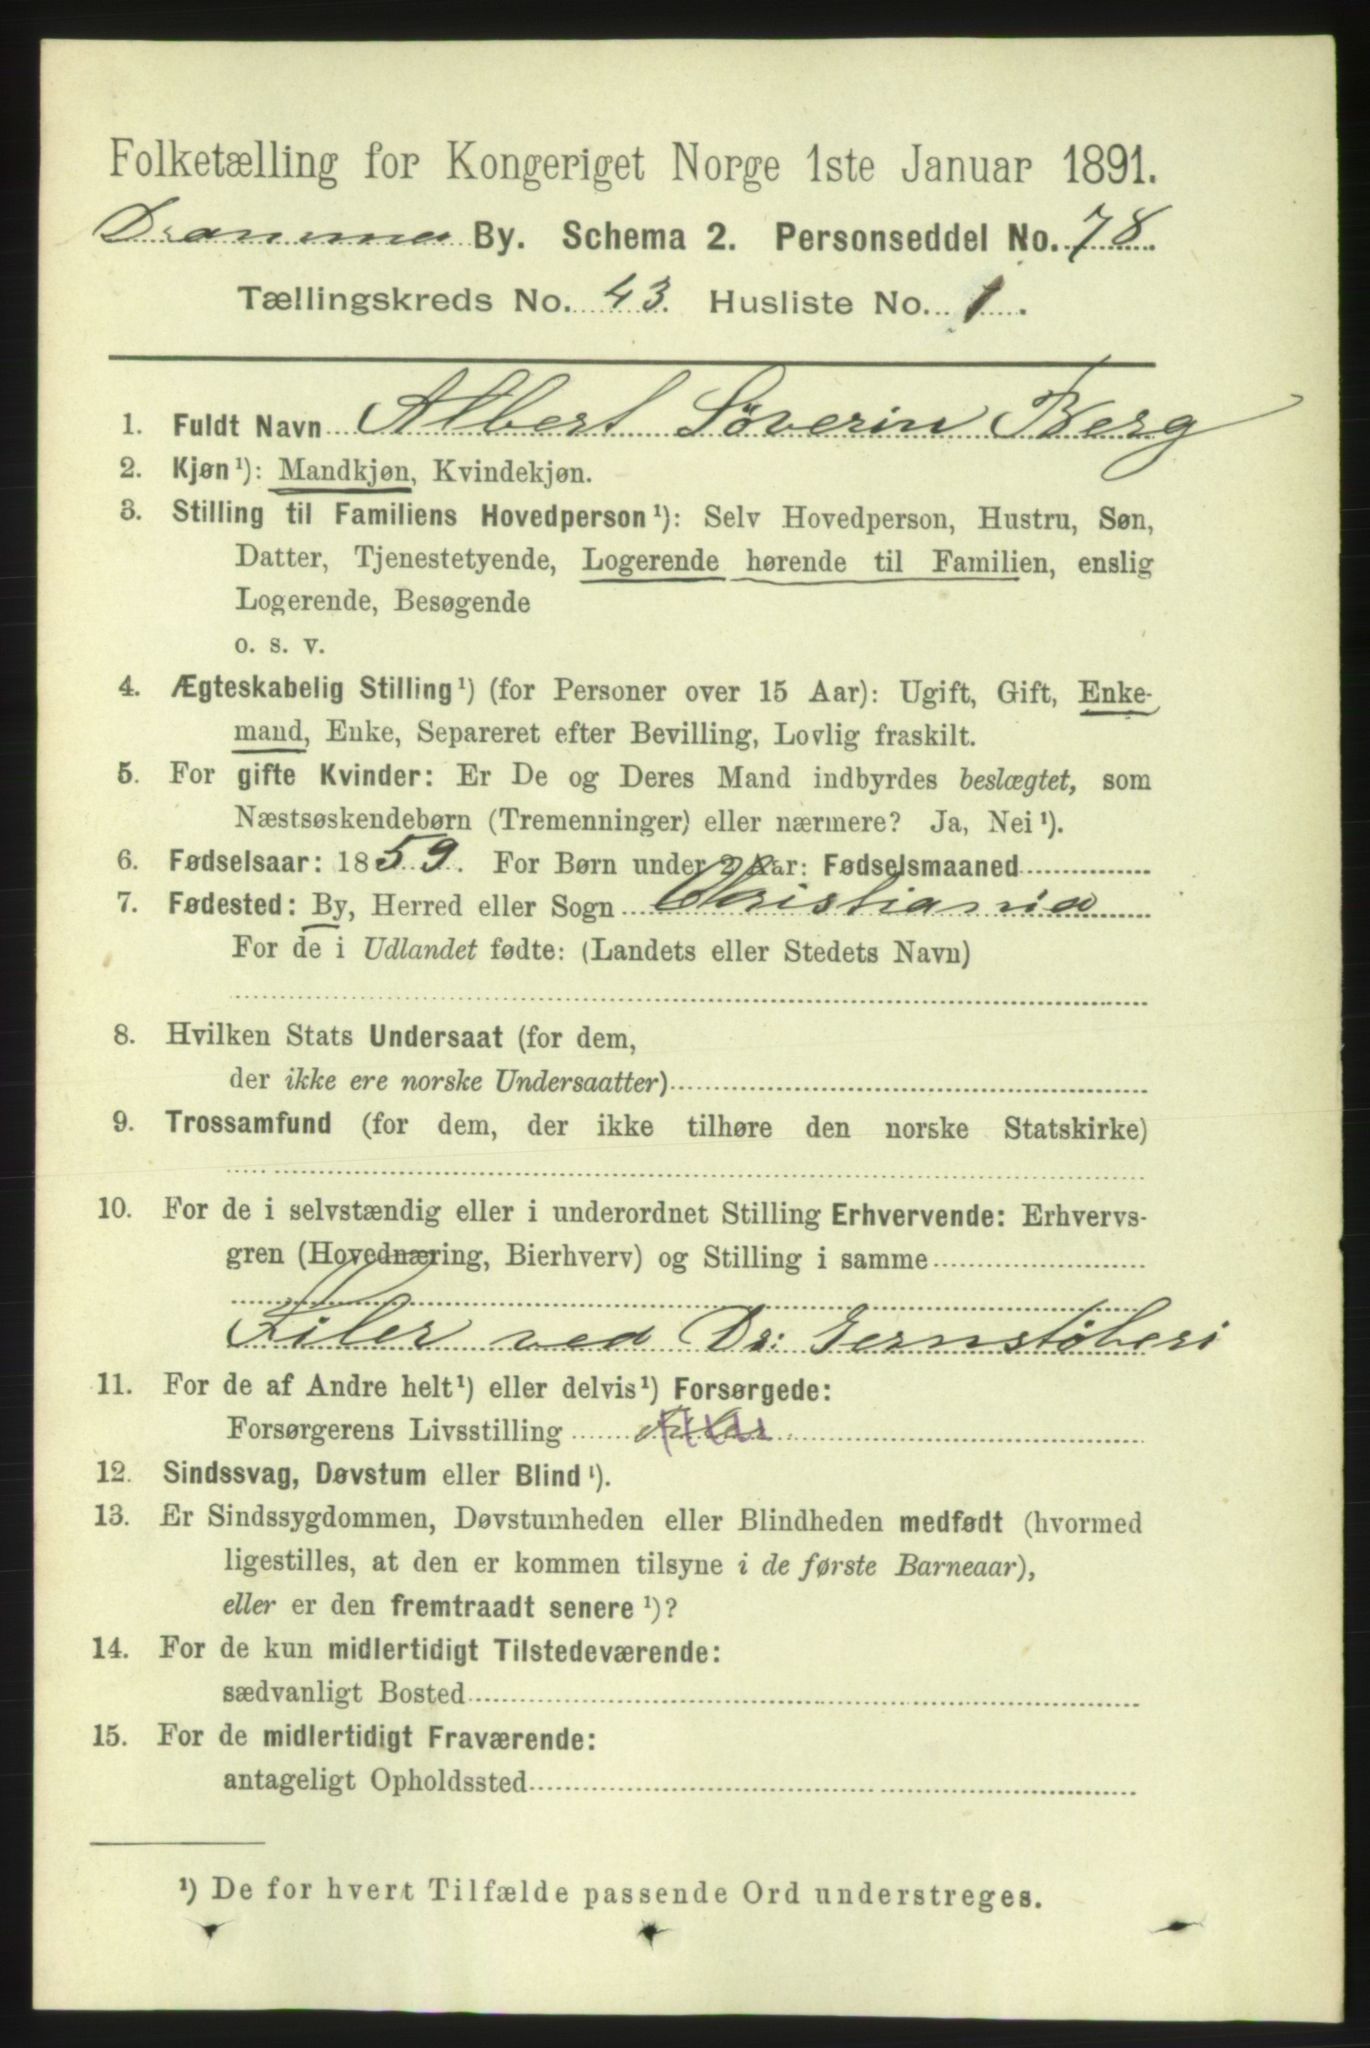 Folketælling for Kongeriget Norge 1ste Januar 1891.
Drammen By. Schema 2. Personseddel No. 78.
Tællingskreds No. 43. Husliste No. 1.
1. Fuldt Navn Albert Söverin Berg
2. Kjøn¹): Mandkjøn, Kvindekjøn.
3. Stilling til Familiens Hovedperson¹): Selv Hovedperson, Hustru, Søn,
Datter, Tjenestetyende, Logerende hørende til Familien, enslig
Logerende, Besøgende
o. s. v.
4. Ægteskabelig Stilling¹) (for Personer over 15 Aar): Ugift, Gift, Enke-
mand, Enke, Separeret efter Bevilling, Lovlig fraskilt.
5. For gifte Kvinder: Er De og Deres Mand indbyrdes beslægtet, som
Næstsøskendebørn (Tremenninger) eller nærmere? Ja, Nei¹).
6. Fødselsaar: 1859. For Børn under 2 Aar: Fødselsmaaned
7. Fødested: By, Herred eller Sogn Christiania
For de i Udlandet fødte: (Landets eller Stedets Navn)
8. Hvilken Stats Undersaat (for dem,
der ikke ere norske Undersaatter)
9. Trossamfund (for dem, der ikke tilhøre den norske Statskirke)
10. For de i selvstændig eller i underordnet Stilling Erhvervende: Erhvervs-
gren (Hovednæring, Bierhverv) og Stilling i samme
Filer ved Dr: Jernstöberi
11. For de af Andre helt¹) eller delvis¹) Forsørgede:
Forsørgerens Livsstilling
12. Sindssvag, Døvstum eller Blind¹).
13. Er Sindssygdommen, Døvstumheden eller Blindheden medfødt (hvormed
ligestilles, at den er kommen tilsyne i de første Barneaar),
eller er den fremtraadt senere¹)?
14. For de kun midlertidigt Tilstedeværende:
sædvanligt Bosted
15. For de midlertidigt Fraværende:
antageligt Opholdssted
¹) De for hvert Tilfælde passende Ord understreges.